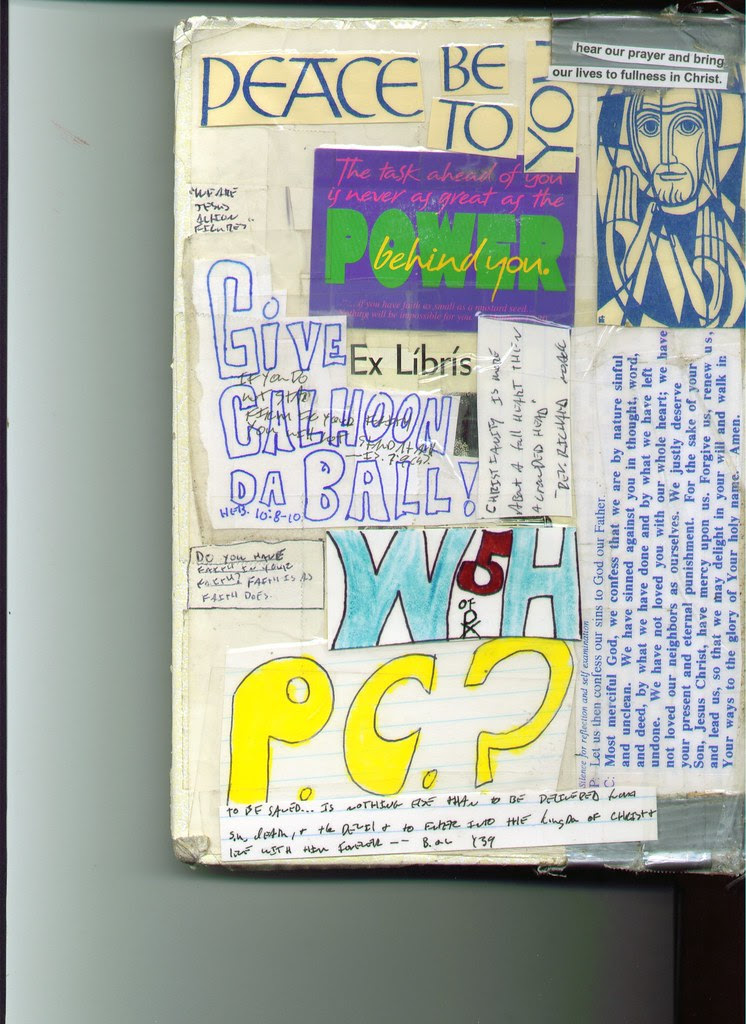 PEACE BE
TO YOU
hear our prayer and bring
our lives to fullness in Christ.
"WE ARE
JESUS
ACTION
FIGURES"
The task ahead of you
is never as great as the
POWER
behind you.
"... if you have faith as small as a mustard seed...
nothing will be impossible for you
GIVE
CALHOON
DA BALL!
HEB. 10:8-10
IF YOU DO
NOT STAND
FIRM IN YOUR FAITH
YOU WILL NOT STAND AT ALL
Ex Libris
CHRISTIANITY IS MORE
ABOUT A full HEART THEN
A CROWDED HEAD"
REV. RICHARD
DO YOU HAVE
FAITH IN YOUR
FAITH? FAITH IS AS
FAITH DOES.
W5H
OF
P.C.?
TO BE SAVED... IS NOTHING ELSE THAN TO BE DELIVERED from
sin, death, & the DEVIL & to ENTER INTO THE kingdom OF CHRIST &
LIVE WITH HIM forever --
Silence for reflection and self examination
Let us then confess our sins to God our Father.
Most merciful God, we confess that we are by nature sinful
and unclean. We have sinned against you in thought, word,
and deed, by what we have done and by what we have left
undone. We have not loved you with our whole heart; we have
not loved our neighbors as ourselves. We justly deserve
your present and eternal punishment. For the sake of your
Son, Jesus Christ, have mercy upon us. Forgive us, renew us,
and lead us, so that we may delight in your will and walk in
Your ways to the glory of Your holy name. Amen.
P.
C.